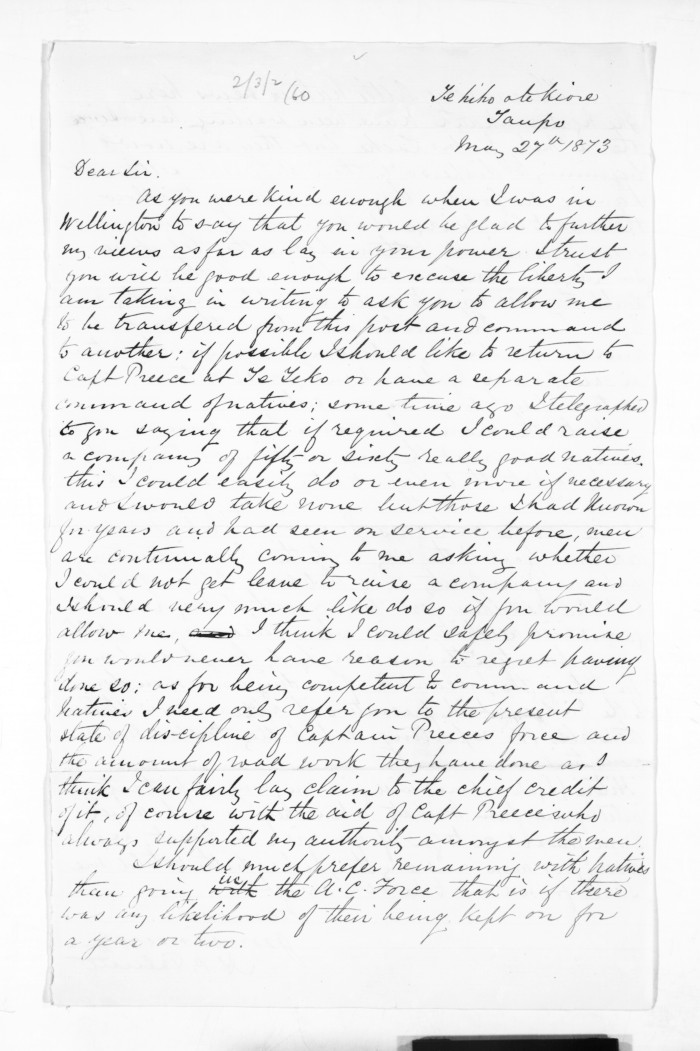 2/3/2/60
Te hiko o te kiore
Taupo
May 27th 1873
Dear Sir.
As you were kind enough when I was in
Wellington to say that you would be glad to further
my views as far as lay in your power I trust
you will be good enough to excuse the liberty I
am taking in writing to ask you to allow me
to be transfered from this post and command
to another; if possible I should like to return to
Capt Preece at Te Teko or have a separate
command of natives; some time ago I telegraphed
to you saying that if required I could raise
a company of fifty or sixty really good natives.
this I could easily do or even more if necessary
and I would take none but those I had known
for years and had seen on service before, men
are continually coming to me asking whether
I could not get leave to raise a company and
I should very much like do so if you would
allow me, and I think I could safely promise
you would never have reason to regret having
done so; as for being competent to command
Natives I need only refer you to the present
state of discipline of Captain Preeces force and
the amount of road work they have done as I
think I can fairly lay claim to the chief credit
of it, of course with the aid of Capt Preece who
always supported my authority amongst the men.
I should much prefer remaining with Natives
than going with in the A.C. Force that is if there
was any likelihood of their being kept on for
a year or two.